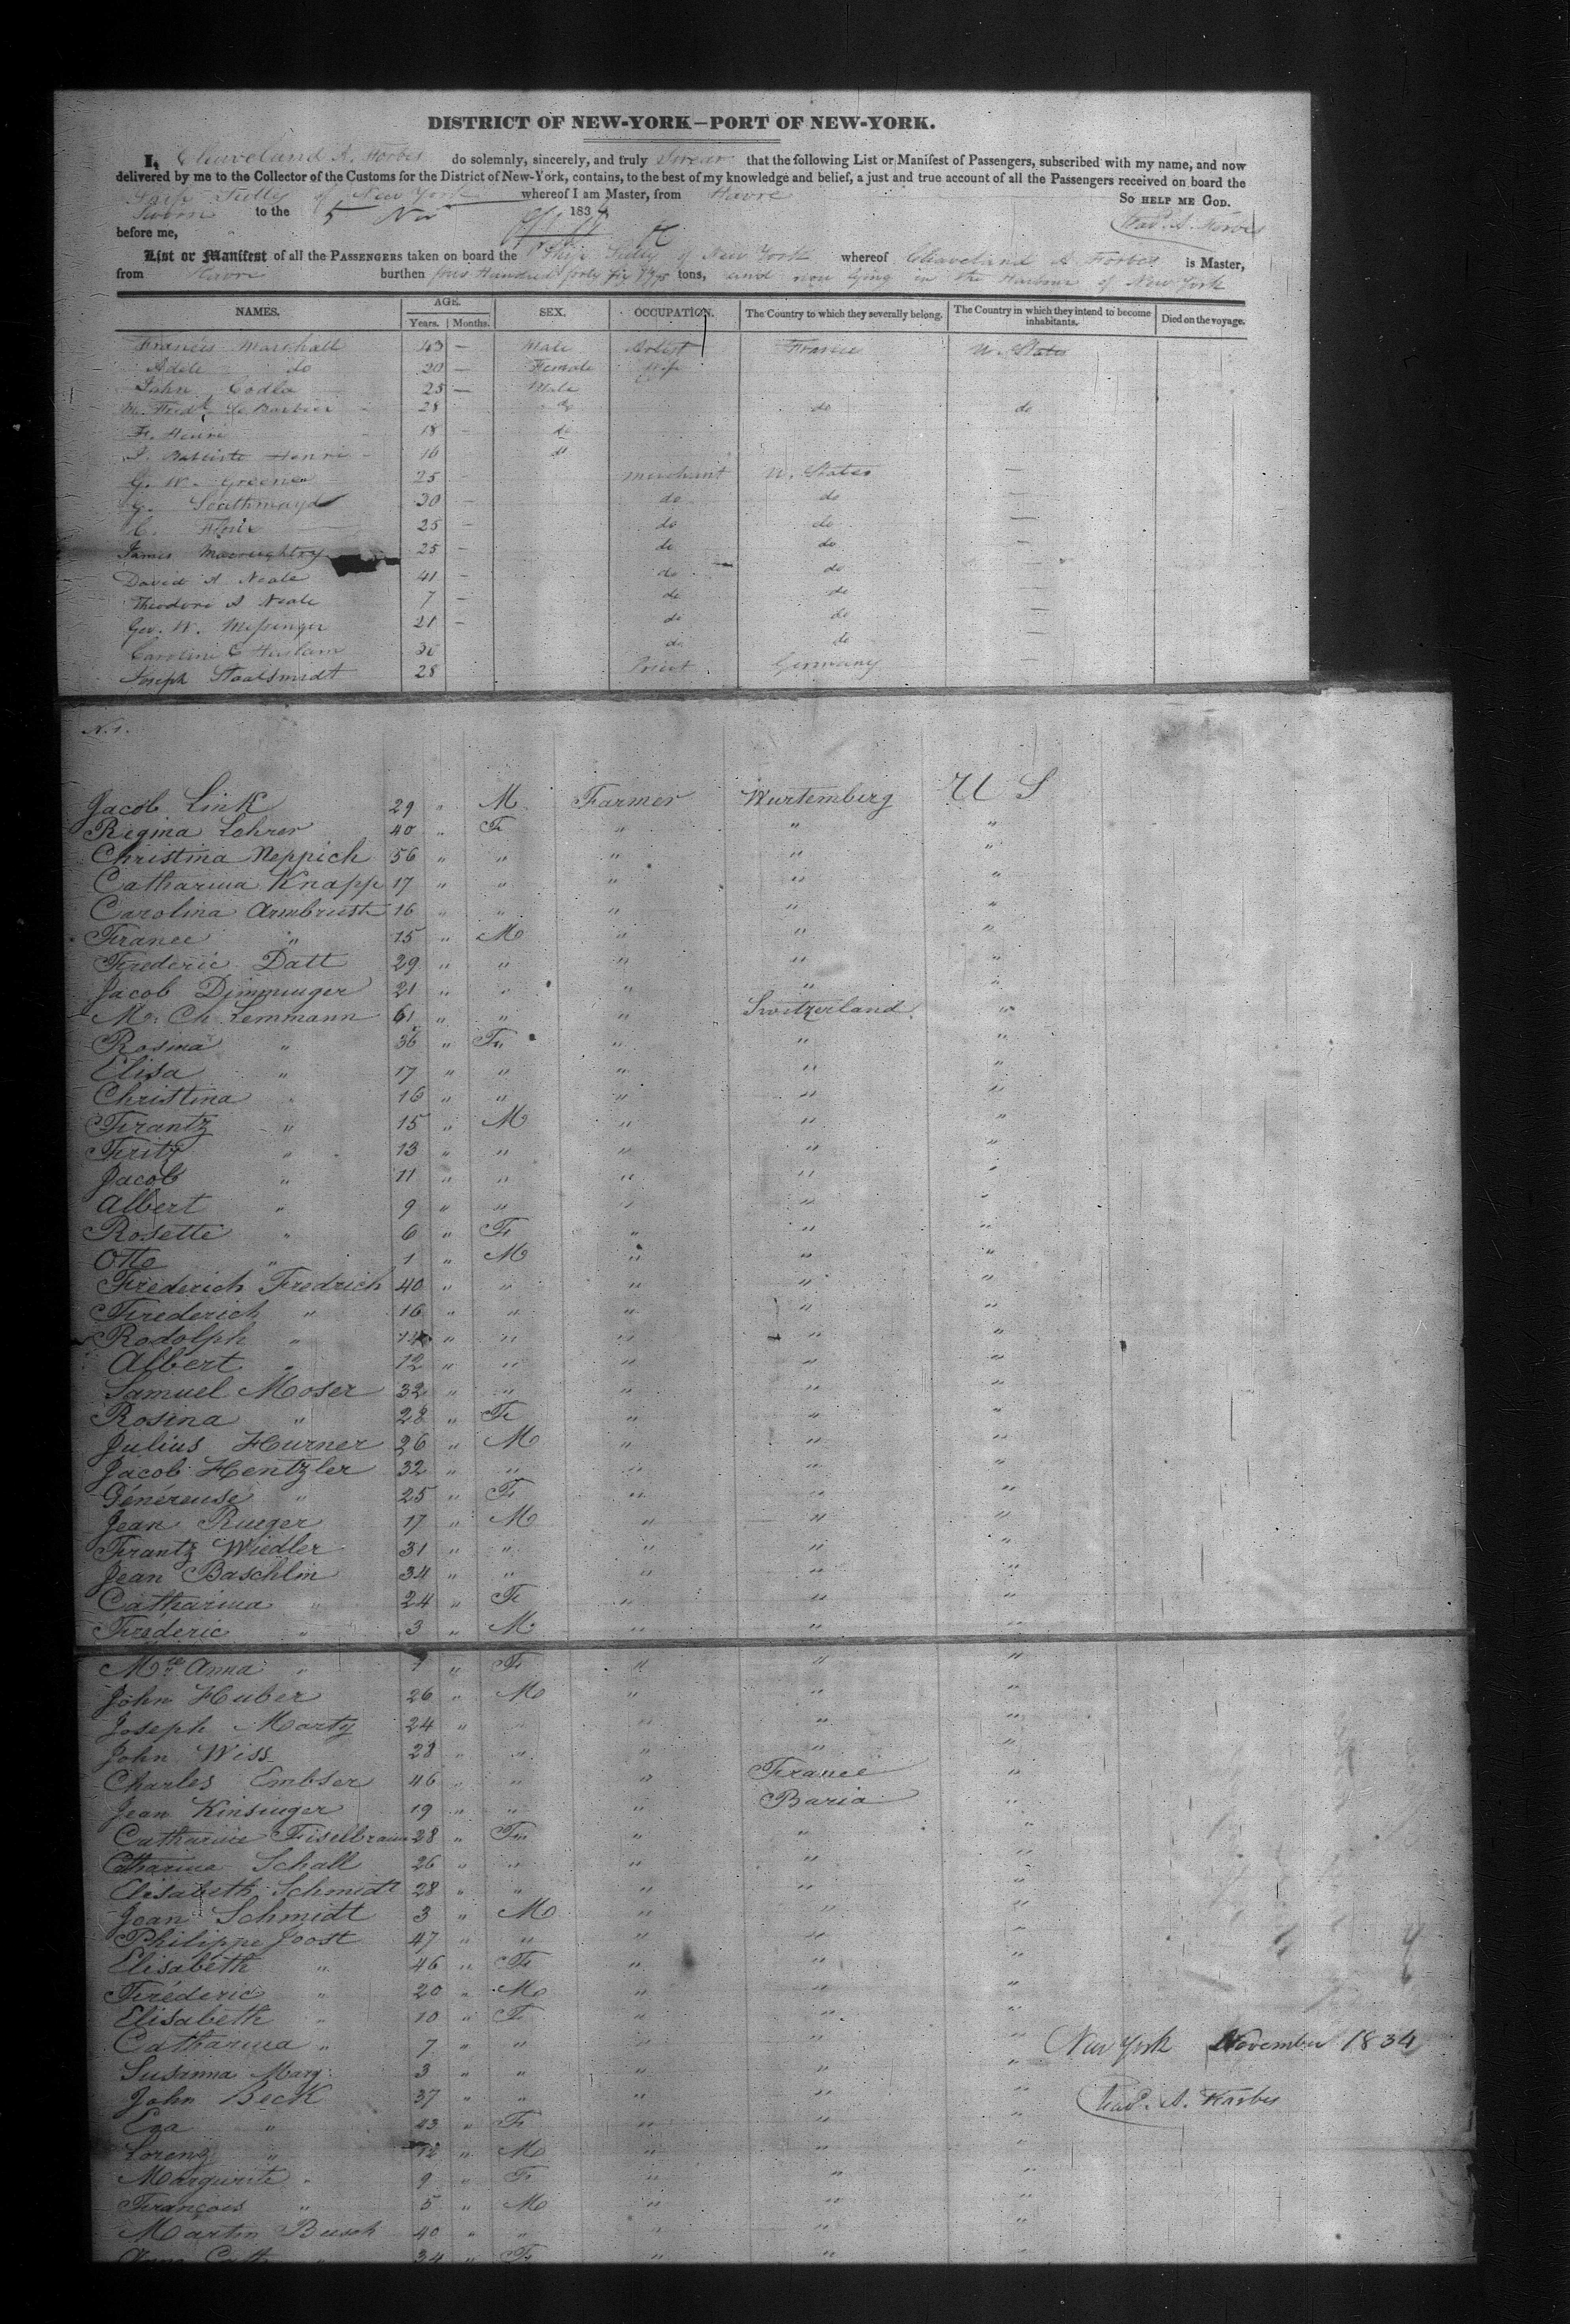 DISTRICT OF NEW-YORK—PORT OF NEW-YORK.
I, Cleaveland A. Forbes do solemnly, sincerely, and truly Swear that the following List or Manifest of Passengers, subscribed with my name, and now
delivered by me to the Collector of the Customs for the District of New-York, contains, to the best of my knowledge and belief, a just and true account of all the Passengers received on board the
Ship Sully of New York whereof I am Master, from Havre
Sworn to the 5 Nov 1834 SO HELP ME GOD.
before me, Clead. A. Forbes
List or Manifest of all the PASSENGERS taken on board the Ship Sully of New York whereof Cleaveland A Forbes is Master,
from Havre burthen four Hundred forty six tons, and now lying in the Harbour of New York
NAMES. AGE. SEX. OCCUPATION. The Country to which they severally belong. The Country in which they intend to become inhabitants. Died on the voyage.
Years. Months.
Francis Marshall 43 — Male Artist France U. States
Adele do 20 — Female Wife
John Codla 25 — Male
M. Fredk Le Barbier 28 do do do
F. Henri 18 do
J. Batiste Henri 16 do
G. W. Greene 25 — merchant U. States —
G. Southmayd 30 — do do —
C. 25 — do do —
James 25 — do do —
David A Neale 41 — do do —
Theodore A Neale 7 — do do —
Geo. W. Messinger 21 — do do —
Caroline E Haslam 30 do do —
Joseph Staalsmidt 28 Priest Germany —
N. 1.
Jacob Link 29 " M Farmer Wurtemberg U S
Regina Lohrer 40 " F " " "
Christina Neppich 56 " " " " "
Catharina Knapp 17 " " " " "
Carolina Armbrust 16 " " " " "
France " 15 " M " " "
Frederic Datt 29 " " " " "
Jacob Dimminger 21 " " " " "
M. Ch. Lemmann 61 " " " Switzerland "
Rosina " 36 " F " " "
Elisa " 17 " " " " "
Christina " 16 " " " " "
Frantz " 15 " M " " "
Fritz " 13 " " " " "
Jacob " 11 " " " " "
Albert " 9 " " " " "
Rosette " 6 " F " " "
Otto " 1 " M " " "
Frederich Fredrich 40 " " " " "
Frederich " 16 " " " " "
Rodolph " 14 " " " " "
Albert " 12 " " " " "
Samuel Moser 32 " " " " "
Rosina " 28 " F " " "
Julius Hurner 26 " M " " "
Jacob Hentzler 32 " " " " "
Généreuse " 25 " F " " "
Jean Rueger 17 " M " " "
Frantz Wiedler 31 " " " " "
Jean Baschlin 34 " " " " "
Catharina " 24 " F " " "
Frederic " 3 " M " " "
Mie Anna " 1 " F " " "
John Huber 26 " M " " "
Joseph Marty 24 " " " " "
John Wiss 28 " " " " "
Charles Embser 46 " " " France "
Jean Kinsinger 19 " " " Baria "
Catharine Fiselbraun 28 " F " " "
Catharina Schall 26 " " " " "
Elisabeth Schmidt 28 " " " " "
Jean Schmidt 3 " M " " "
Philippe Joost 47 " " " " "
Elisabeth " 46 " F " " "
Fréderic " 20 " M " " "
Elisabeth " 10 " F " " "
Catharina " 7 " " " " "
Susanna Marg. 3 " " " " "
New York November 1834
John Beck 37 " " " " "
Clead. A. Forbes
Eva " 43 " F " " "
Lorenz " 12 " M " " "
Margurite " 9 " F " " "
François " 5 " M " " "
Martin Busch 40 " " " " "
Anna Cath " 34 " F " " "